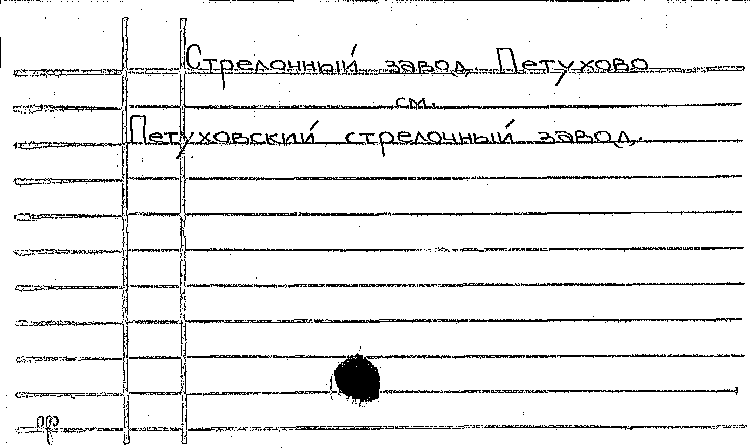 Стрелочный завод. Петухово
см.
Петуховский стрелочный завод.